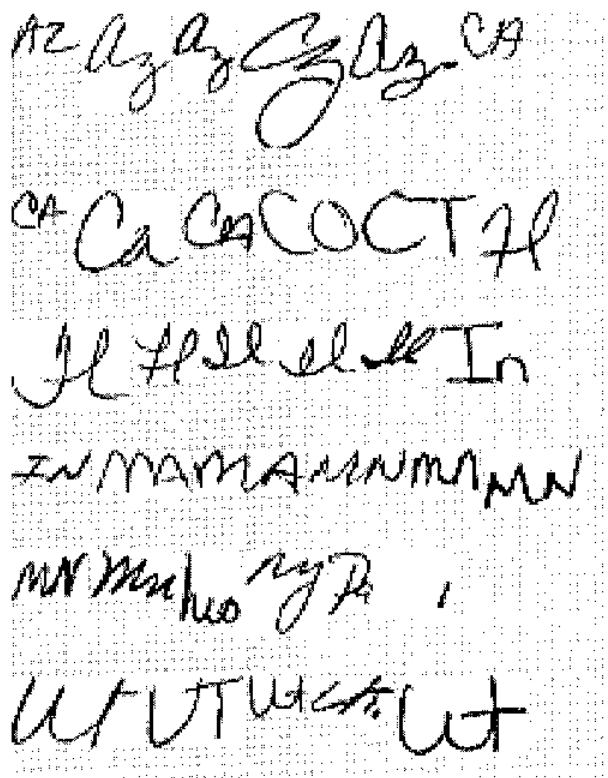 AZ Az Az Cz Az. CA
CA Ca CA CO CT Fl
Fl Fl Il Il Il In
IN MA MA MN MN MN
MN Mn Mo ny Pa
Ut UT Ut Ut